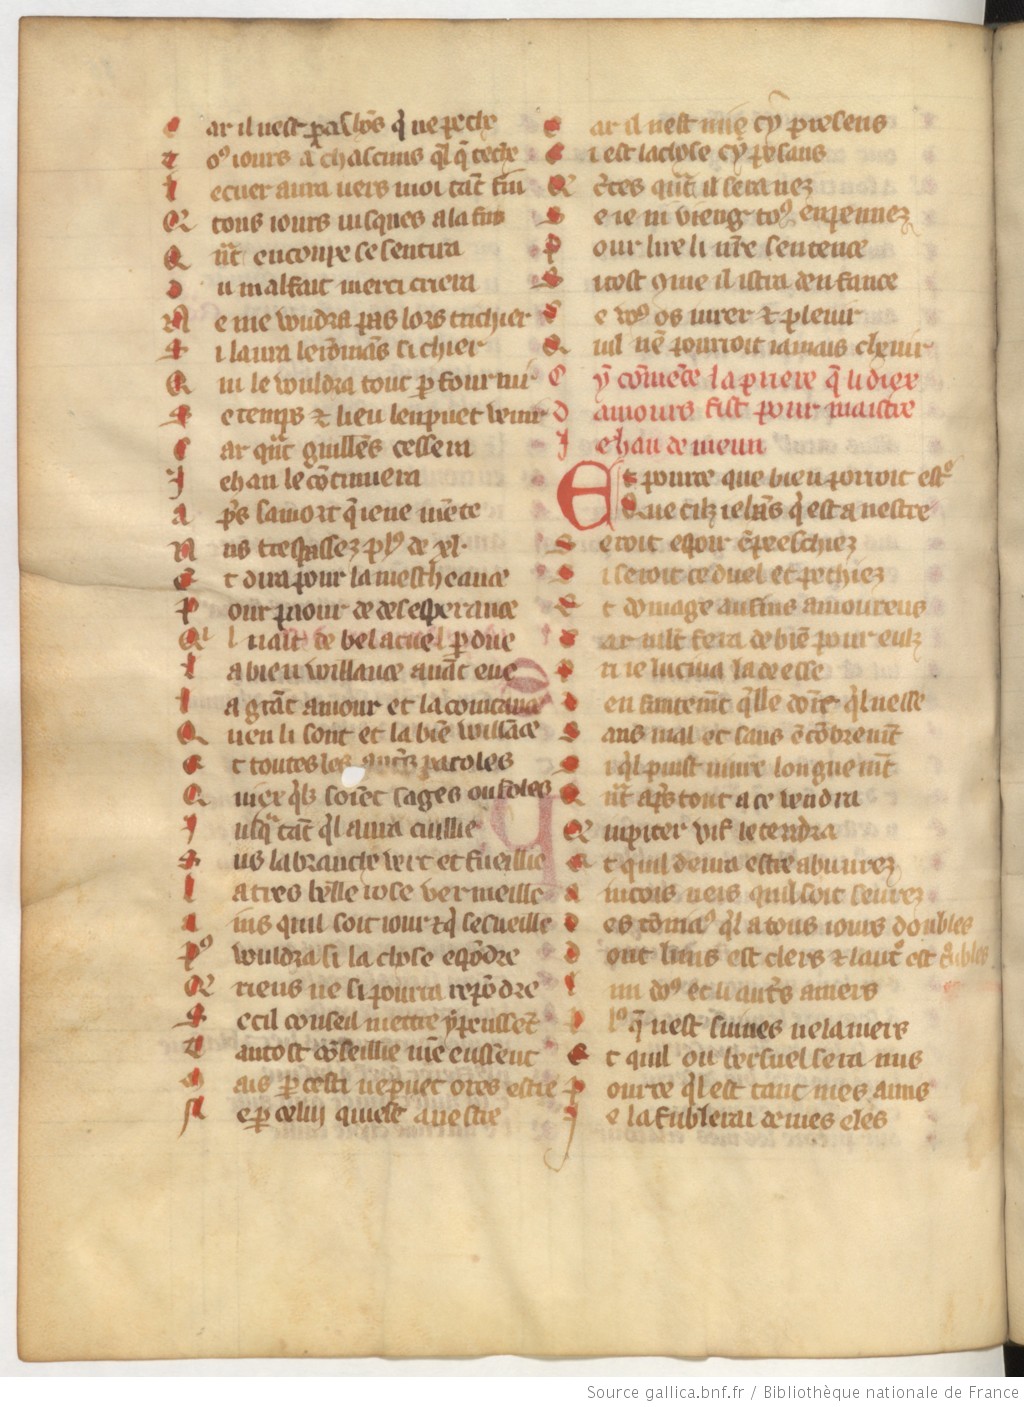 C ar il nest pas homs q̃ ne peche
T oꝰ iours a chascuns ql̃ q̃ teche
L e cuer aura uers moi tant fin
Q tous iours iusques a la fin
Q nt̃ en coupe se sentira
D u malfait merci criera
N e me voudra pas lors trichier
S i laura le rõmãs si chier
Q ui le vouldra tout ꝑ fournir
S e temps ⁊ lieu len puet venir
C ar qñt guillẽs cessera
J ehan le cõtinuera
A pr̃s sa mort q̃ ie ne mẽte
A ns trespassez plꝰ de xl.
E t dira pour la mescheance
P our paour de desesperance
Q l nait de bel acueil perdue
L a bien uoillance auãt eue
L a grãt amour et la couine
Q ueu li sont et la biẽ uoillãce
E t toutes les autr̃s paroles
Q uiex ql̃s soiẽt sages ou foles
J usqꝰ tãt ql̃ aura cuillie
S us la branche vert et fueillie
L a tres belle rose vermeille
A ins quil soit iour ⁊ q̃ lesueille
Pꝰ vouldra si la chose espõdre
Q riens ne si pourra repõdre
S e cil conseil mettre y peusset̃
T antost cõseillie men eussent
M ais ꝑ cesti ne puet ores estre
N e ꝑ celui qui est a nestre
C ar il nest mie cy presens
S i est la chose cy pesans
Q c̃tes qñt il sera nez
S e ie ni vieng toꝰ enpennez
P our lire li ur̃e sentence
S i tost 9me il istra denfance
C e voꝰ os iurer ⁊ pleuir
Q uil nẽ pourroit iamais cheuir
C y cõmẽce la priere q̃ li diex
D amours fist pour maistre
J ehan de meun
E t pource que bien porroit estꝰ
Q ue cilz iehãs q̃ est a nestre
S eroit espoir ẽpeeschiez
S i seroit ce duel et pechiez
E t domage aus fins amoureus
C ar mlt fera de biẽ pour eulz
P ri ie lucina la deesse
D enfantemt̃ q̃lle doĩt ql̃ nesse
S ans mal et sans ẽcõbremt̃
S i ql̃ puist uiure longuemt̃
Q nt̃ aps̃ tout a ce vendra
Q iupiter vif le tendra
E t quil deura estre abuurez
A incois neis quil soit seurez
D es tõniaꝰ ql̃ a tous iours doubles
D ont luns est clers ⁊ lautꝰ est troubles
L un doꝰ et li autr̃s amers
Plꝰ q̃ nest suines ne la mers
E t quil ou bersuel sera mis
P our ce ql̃ est tant mes amis
J e lafublerai de mes eles